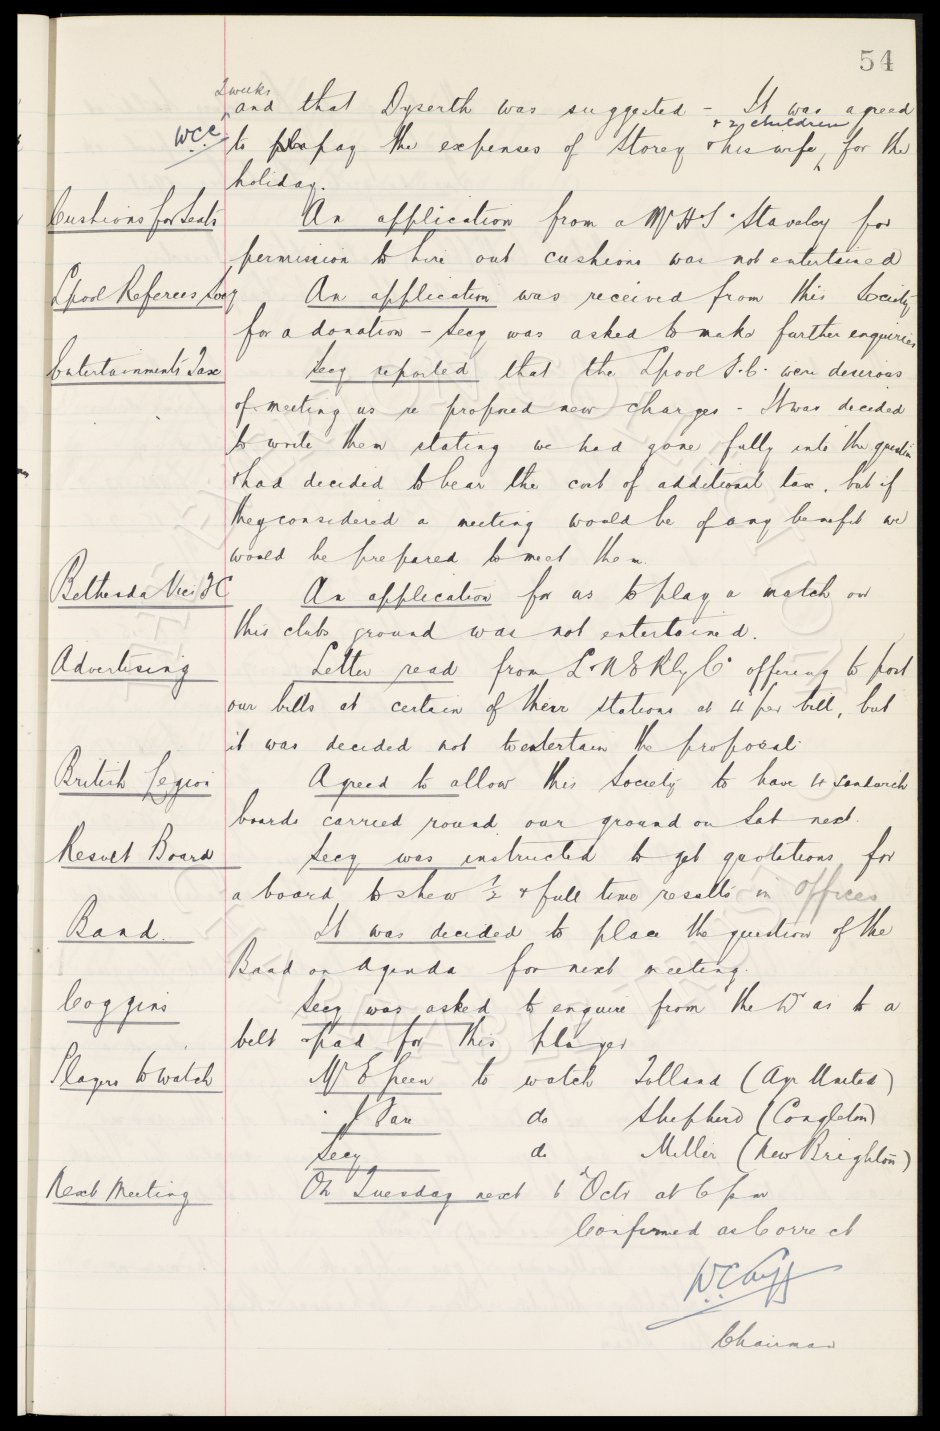 54
2 weeks
and that Dyserth was suggested - It was agreed
+ 2 children
W.C.C. to pay the expenses of Storey & his wife, for the
holiday.
Cushions for Seats An application from a Mr H S Staveley for
permission to hire out cushions was not entertained
Lpool Referees Socy An application was received from this Society
for a donation - Secy was asked to make further enquiries
Entertainments Tax Secy reported that the Lpool F.C. were desirous
of meeting us re proposed new charges - It was decided
to write them stating we had gone fully into the question
& had decided to bear the cost of additional tax, but if
they considered a meeting would be of any benefit we
would be prepared to meet them.
Bethesda Vics F C An application for us to play a match on
this clubs ground was not entertained.
Advertising Letter read from L & N E Rly Co offering to post
our bills at certain of their stations at 4 per bill, but
it was decided not to entertain the proposal
British Legion Agreed to allow this Society to have 4 sandwich
boards carried round our ground on Sat next.
Result Board Secy was instructed to get quotations for
a board to shew ½ & full time results in Offices
Band. It was decided to place the question of the
Band on Agenda for next meeting.
Coggins Secy was asked to enquire from the Dr as to a
belt & pad for this player
Players to watch Mr E Green to watch Tolland (Ayr United)
do Shepherd (Congleton)
Secy do Miller (New Brighton)
Next Meeting On Tuesday next 6 Octr at 6 pm
Confirmed as Correct
W C Cuff
Chairman